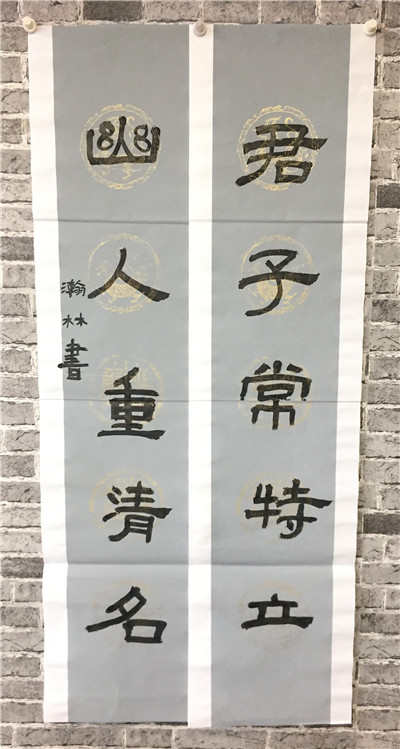 君子常特立
幽人重清名
瀚林書